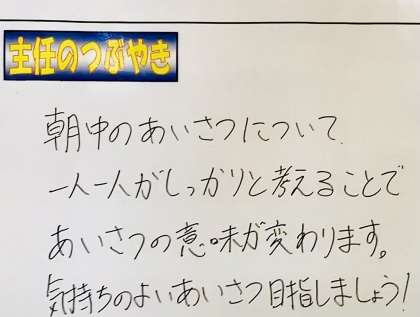 主任のつぶやき
朝中のあいさつについて
一人一人がしっかりと考えることで
あいさつの意味が変わります。
気持ちのよいあいさつ目指しましょう!